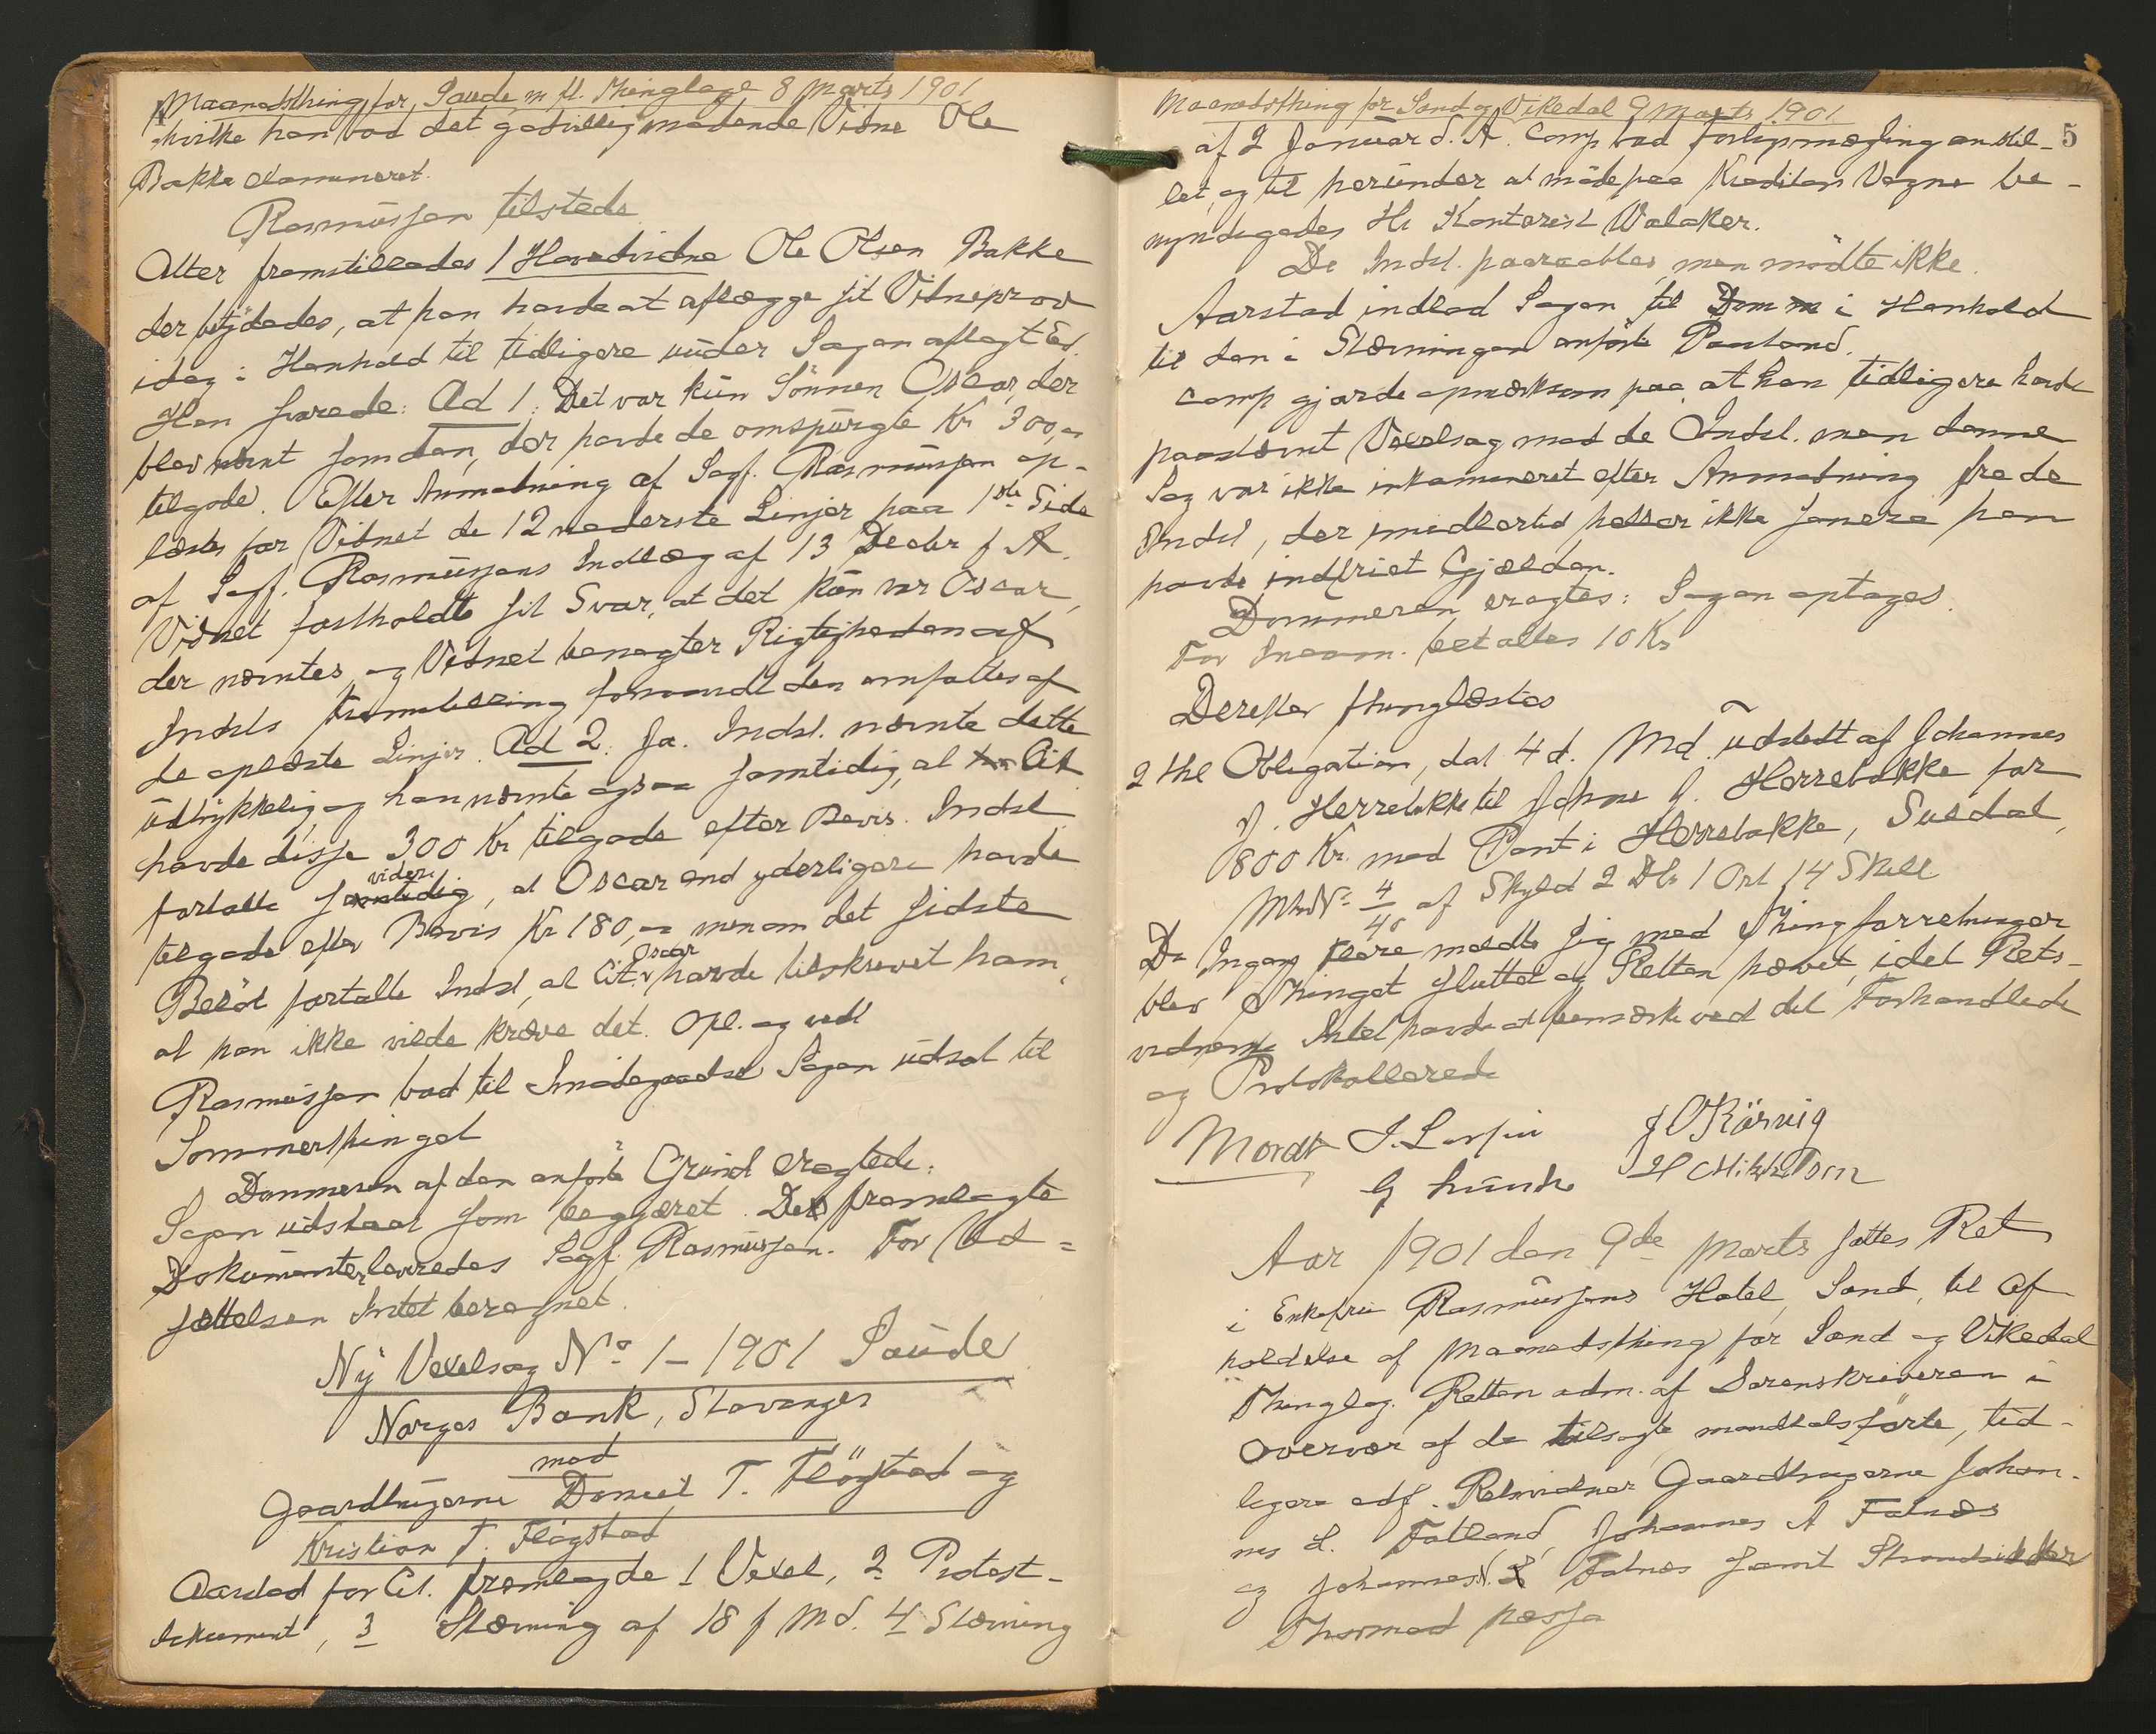 Maanedsthing for Saude m fl. Thinglage 8 Marts 1901
hvilke han bad det godvillig mødende Vidne Ole
Bakke examineret.
Rasmussen tilstede.
Atter fremstilledes 1 Hovedvidne Ole Olsen Bakke
der betydedes, at han havde at aflægge sit Vidneprov
idag i Henhold til tidligere under Sagen aflagt Ed.
Han svarede: Ad 1: Det var kun Sønnen Oscar, der
blev nævnt som den, der havde de omspurgte Kr 300,00
tilgode. Efter Anmodning af Sagf. Rasmussen op-
læstes for Vidnet de 12 nederste Linjer paa 1ste Side
af Sagf. Rasmussens Indlæg af 13 Decbr f A.
Vidnet fastholdte sit Svar, at det kun var Oscar,
der nævntes og Vidnet benægter Rigtigheden af
Indsts Fremstilling forsaavidt den omfattes af
de oplæste Linjer. Ad 2: Ja. Indst. nævnte dette
udtrykkelig og han nævnte ogsaa samtidig, at Cit
havde disse 300 Kr tilgode efter Bevis. Indst
fortalte videre, at Oscar end yderligere havde
tilgode efter Bevis Kr 180,00 men om det sidste
Beløb fortalte Indst, at Cit. Oscar havde tilskrevet ham,
at han ikke vilde kræve det. Opl. og vedt
Rasmussen bad til Imødegaaelse Sagen udsat til
Sommerthinget
Dommeren af den anførte Grund eragtede:
Sagen udstaar som begjæret. De fremlagte
Dokumenter leveredes Sagf. Rasmussen. For Ud-
sættelsen Intet beregnet.
Ny Vexelsag No 1 - 1901 Saude
Norges Bank, Stavanger
mod
Gaardbrugerne Daniel T. Fløgstad og
Kristian T. Fløgstad
Aarstad for Cit. fremlagde 1 Vexel, 2 Protest-
dokument, 3 Stævning af 18 f Md. 4 Stævning
Maanedsthing for Sand og Vikedal 9 Marts 1901
5
af 2 Januar d. A. Comp bad Forligsmægling anstil-
let, og til herunder at møde paa Kreditors Vegne be-
myndigedes Hr Kontorist Walaker.
De Indst. paaraabtes men mødte ikke.
Aarstad indlod Sagen til Dom i Henhold
til den i Stævningen anførte Paastand.
Comp gjorde opmærksom paa, at han tidligere havde
paastævnt Vexelsag mod de Indst. men denne
Sag var ikke inkamineret efter Anmodning fra de
Indst, der imidlertid heller ikke senere hen
havde indfriet Gjælden.
Dommeren eragtes: Sagen optages.
For Incam. betaltes 10 Kr
Derefter thinglæstes
2 thl Obligation, dat 4 d. Md. udstedt af Johannes
J. Herrebakke til Johne J. Herrebakke for
1800 Kr. med Pant i Herrebakke, Suldal,
MNo 4/40 af Skyld 2 Dlr 1 Ort 14 Skill
Da Ingen flere meldte sig med Thingforretninger
blev Thinget sluttet og Retten hævet, idet Rets-
vidnerne Intet havde at bemærke ved det Forhandlede
og Protokollerede
Mordt J. Larsen J O Rørvig
G Hunke H Mikkelson
Aar 1901 den 9de Marts sattes Ret
i Enkefru Rasmussens Hotel, Sand, til Af-
holdelse af Maanedsthing for Sand og Vikedal
Thinglag. Retten adm. af Sorenskriveren i
Overvær af de tilsagte mandtalsførte, tid-
ligere edf. Retsvidner Gaardbrugerne Johan-
nes L. Fatland, Johannes A Fatnæs
og Johannes N. Fatnæs samt Strandsidder
Thormod